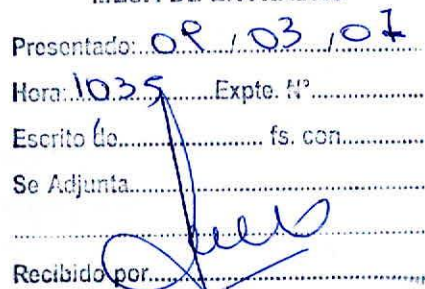 Presentado: 09 / 03 / 07
Hora: 1035 Expte. N°
Escrito de fs. con
Se Adjunta
Recibido por